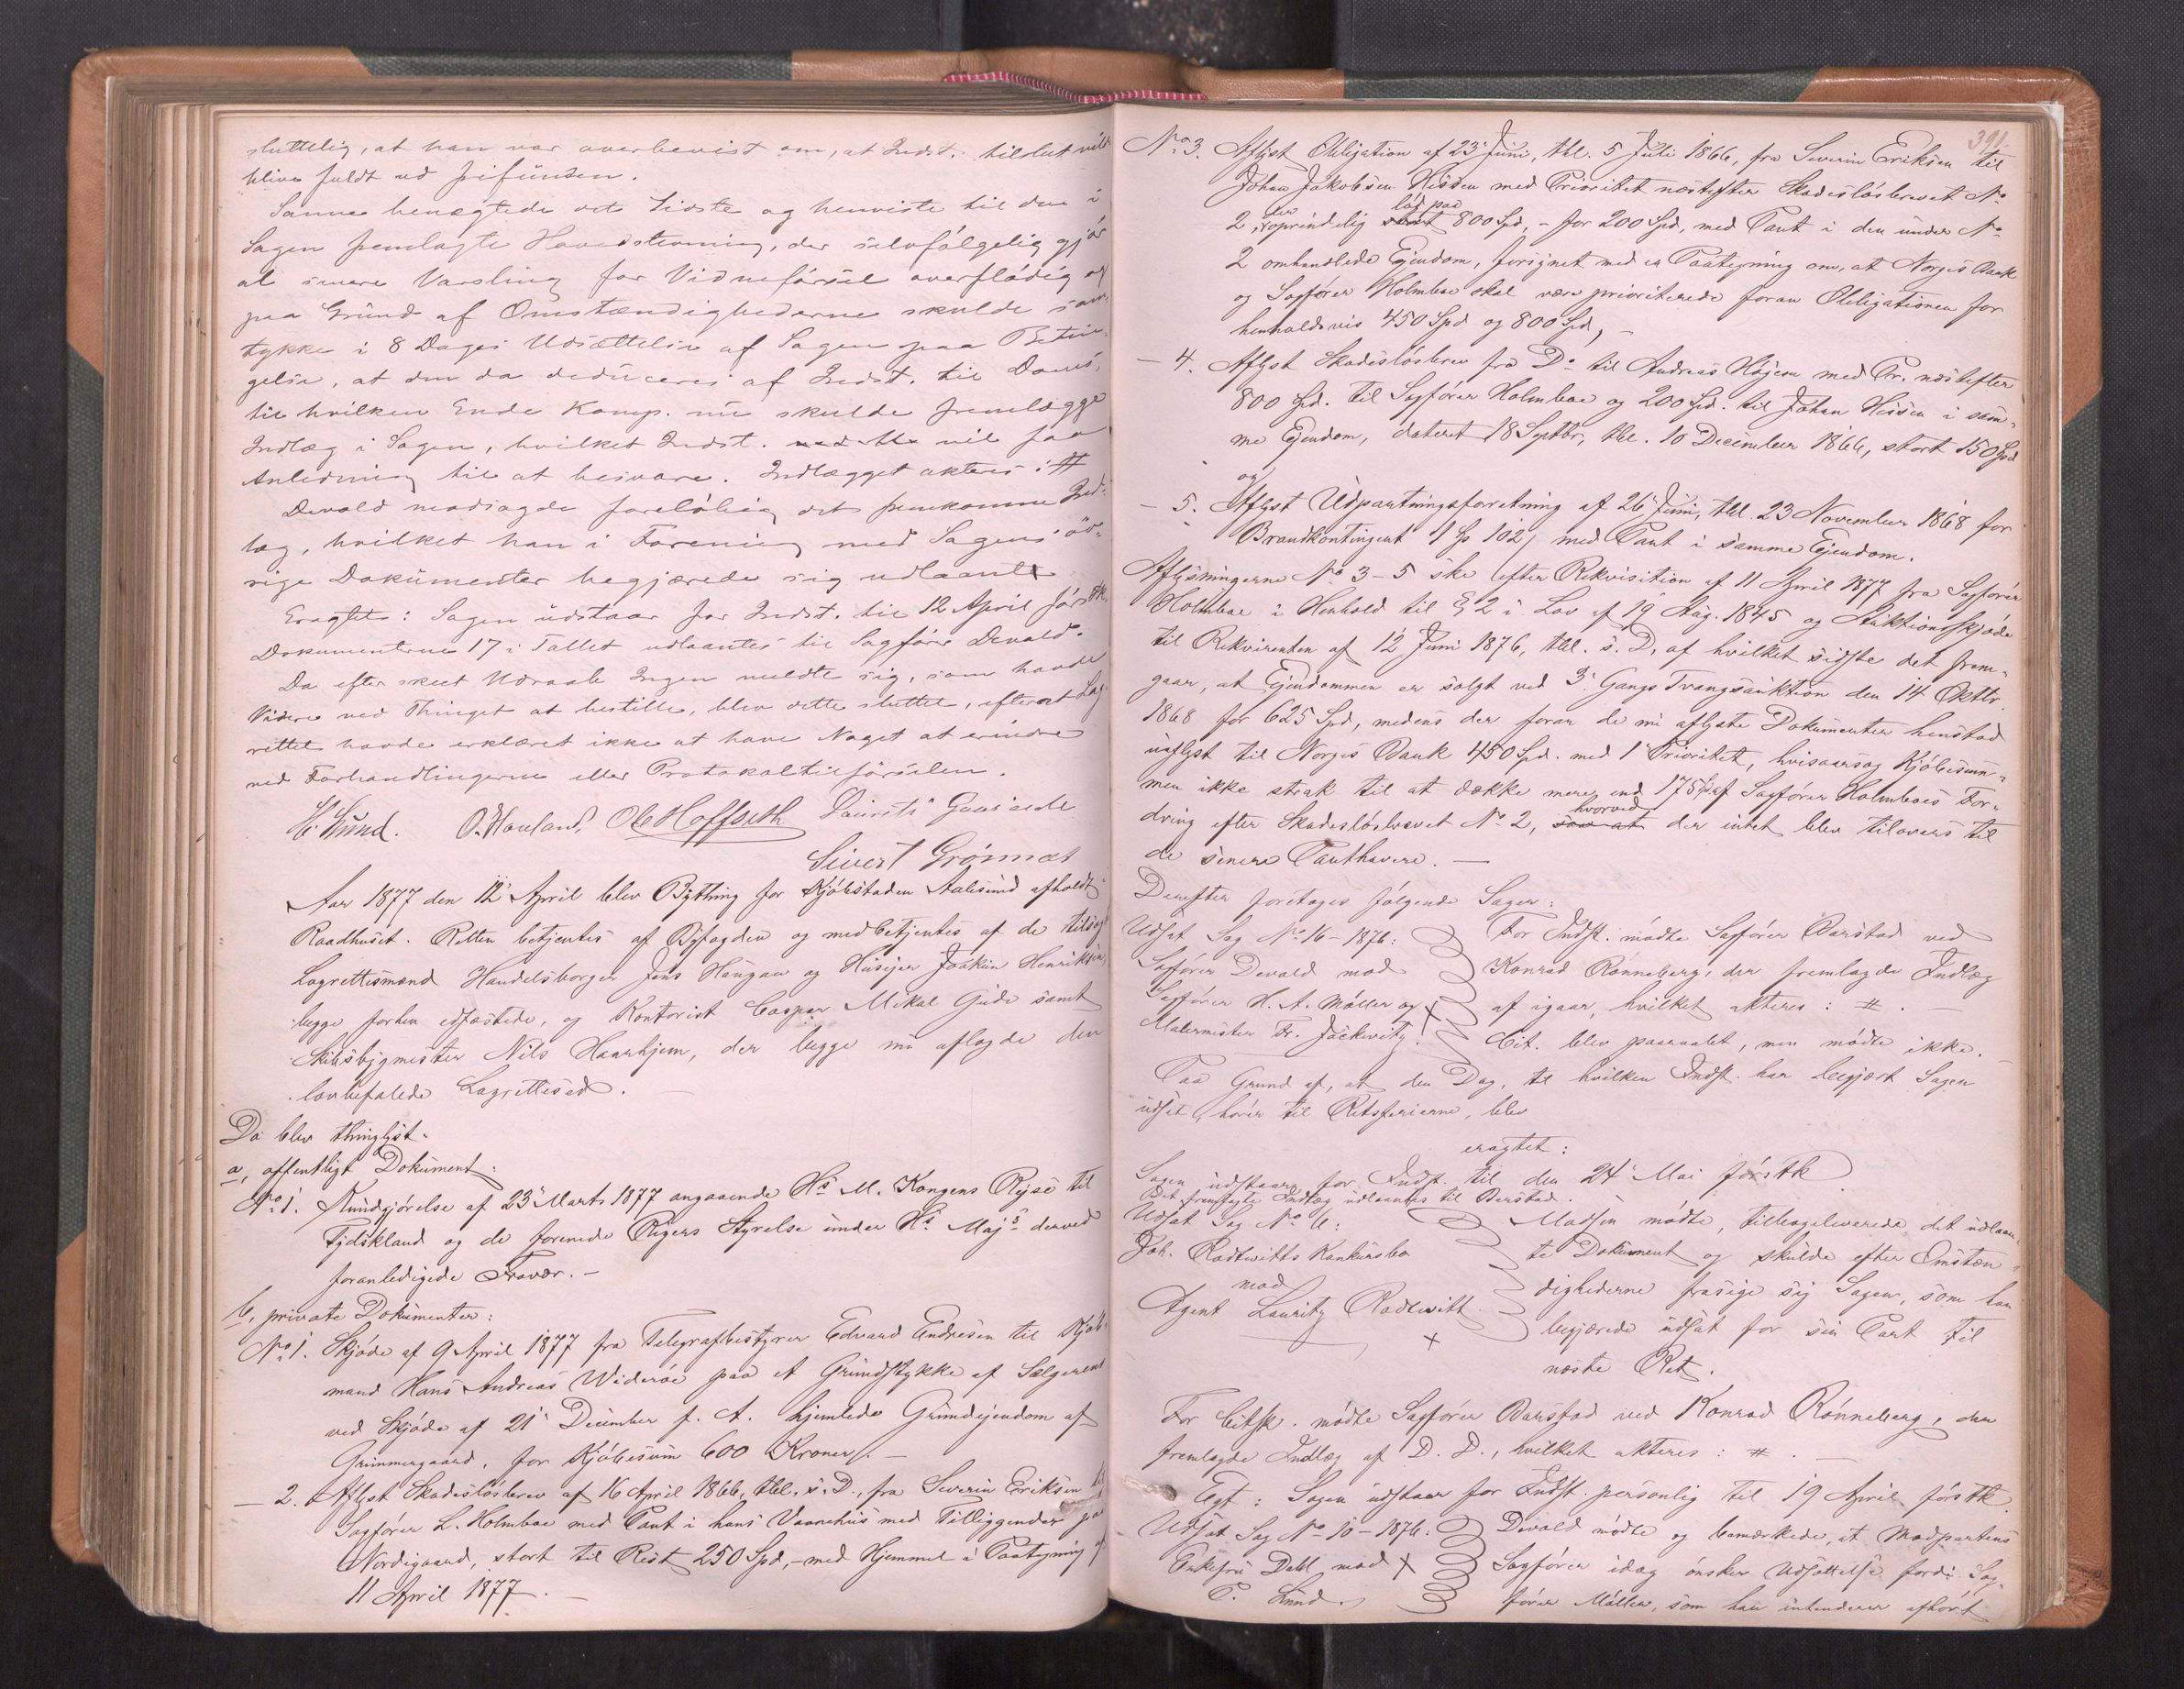 sluttelig, at han var overbevist om, at Indst. tilslut vilde
blive fuldt ud frifunden.
Samme benægtede det Sidste og henviste til den i
Sagen fremlagte Hovedstevning, der selvfølgelig gjør
al senere Varsling for Vidneførsel overflødig og
paa Grund af Omstændighederne skulde sam-
tykke i 8 Dages Udsættelse af Sagen paa Betin-
gelse, at den da deduceres af Indst. til Doms,
til hvilken Ende Komp. nu skulde fremlægge
Indlæg i Sagen, hvilket Indst. vil faa
Anledning til at besvare. Indlægget akteres: #
Devold modsagde foreløbig det fremkomne Ind-
læg, hvilket han i Forening med Sagens öv-
rige Dokumenter begjærede sig udlaant
Eragtet: Sagen udstaar for Indst. til 12 April førstk.
Dokumenterne 17 i Tallet udlaantes til Sagfører Devold.
Da efter skeet Udraab Ingen meldte sig, som havde
Videre ved Thinget at bestille, blev dette sluttet, efterat Lag-
rettet havde erklæret ikke at have Noget at erindre
ved Forhandlingerne eller Protokoltilførselen.
H. Lund. O. Hauland, Ob Hoffseth Laurits Gaaseide
Sivert Grönmæt
Aar 1877 den 12 April blev Bything for Kjöbstaden Aalesund afholdt
Raadhuset. Retten betjentes af Byfogden og medbetjentes af de tilsagte
Lagrettesmænd Handelsborger Jens Haugan og Huseier Joakim Henriksen,
begge forhen edfæstede, og Kontorist Caspar Mikal Gude samt
Skibsbygmester Nils Haarhjem, der begge nu aflagde den
lovbefalede Lagrettesed.
Da blev thinglyst.
a, offentligt Dokument:
No 1. Kundgjørelse af 23 Marts 1877 angaaende Hs M. Kongens Reise til
Tydskland og de forenede Rigers Styrelse under Hs Majs derved
foranledigede Fravær.
b, private Dokumenter:
No 1. Skjøde af 9 April 1877 fra Telegrafbestyrer Edvard Endresen til Kjøb-
mand Hans Andreas Widerøe paa et Grundstykke af Sælgerens
ved Skjøde af 21 December f. A. hjemlede Grundejendom af
Grimmergaard, for Kjøbesum 600 Kroner.
— 2. Aflyst Skadesløsbrev af 16 April 1866, thl. s. D., fra Severin Eriksen til
Sagfører L. Holmboe med Pant i hans Vaanehus med Tilliggender paa
Nordigaard, stort til Rest 250 Spd, - med Hjemmel i Paategning af
11 April 1877.
391.
No 3. Aflyst Obligation af 23 Juni, thl. 5 Juli 1866, fra Severin Eriksen til
Johan Jakobsen Hessen med Prioritet næstefter Skadesløsbrevet No
2, der oprindelig stort lød paa 800 Spd, - for 200 Spd, med Pant i den under No
2 omhandlede Ejendom, forsynet med en Paategning om, at Norges Bank
og Sagfører Holmboe skal være prioriterede foran Obligationen for
henholdsvis 450 Spd og 800 Spd,
— 4. Aflyst Skadesløsbrev fra Do til Andreas Høyem med Pr. næstefter
800 Spd. til Sagfører Holmboe og 200 Spd. til Johan Hessen i sam-
me Ejendom, dateret 18 Septbr, thl. 10 December 1866, stort 150 Spd
og
— 5. Aflyst Udpantningsforretning af 26 Juni, thl. 23 November 1868 for
Brandkontingent 4 102 med Pant i samme Ejendom.
Aflysningerne No 3-5 ske efter Rekvisition af 11 April 1877 fra Sagfører
Holmboe i Henhold til § 2 i Lov af 19 Aug. 1845 og Auktionsskjøde
til Rekvirenten af 12 Juni 1876, thl. s. D, af hvilket sidste det frem-
gaar, at Ejendommen er solgt ved 3 Gangs Tvangsauktion den 14 Oktbr.
1868 for 625 Spd, medens der foran de nu aflyste Dokumenter henstod
uaflyst til Norges Bank 450 Spd. med 1 Prioritet, hvisaarsag Kjøbesum-
men ikke strak til at dække mere end 175 Spd af Sagfører Holmboes For-
dring efter Skadesløsbrevet No 2, saa at hvorved der intet blev tilovers til
de senere Panthavere.
Derefter foretoges følgende Sager:
Udsat Sag No 16 - 1876:
Sagfører Devold mod
Sagfører H. A. Møller og
Malermester Fr. Jackwitz.
For Indst. mødte Sagfører Barstad ved
Konrad Rønneberg, der fremlagde Indlæg
af igaar, hvilket akteres: #.
Cit. blev paaraabt, men mødte ikke.
Paa Grund af, at den Dag, til hvilken Indst. har begjært Sagen
udsat, hører til Retsferierne, blev
eragtet:
Sagen udstaar for Indst. til den 24 Mai førstk
Det fremlagte Indlæg udlaantes til Barstad.
Udsat Sag No 6:
Joh. Radtwitts Konkursbo
mod
Agent Lauritz Radtwitt
Madsen mødte, tilbageleverede det udlaan-
te Dokument og skulde efter Omstæn-
dighederne frasige sig Sagen, som han
begjærede udsat for sin Part til
næste Ret.
For Citst. mødte Sagfører Barstad ved Konrad Rønneberg, der
fremlagde Indlæg af D. D., hvilket akteres: #.
Egt: Sagen udstaar for Indst. personlig til 19 April førstk.
Udsat Sag No 10 - 1876:
Enkefru Dahl mod
P. Lund.
Devold mødte og bemærkede, at Modpartens
Sagfører idag ønsker Udsættelse fordi Sag-
fører Møller, som han intenderer afhørt